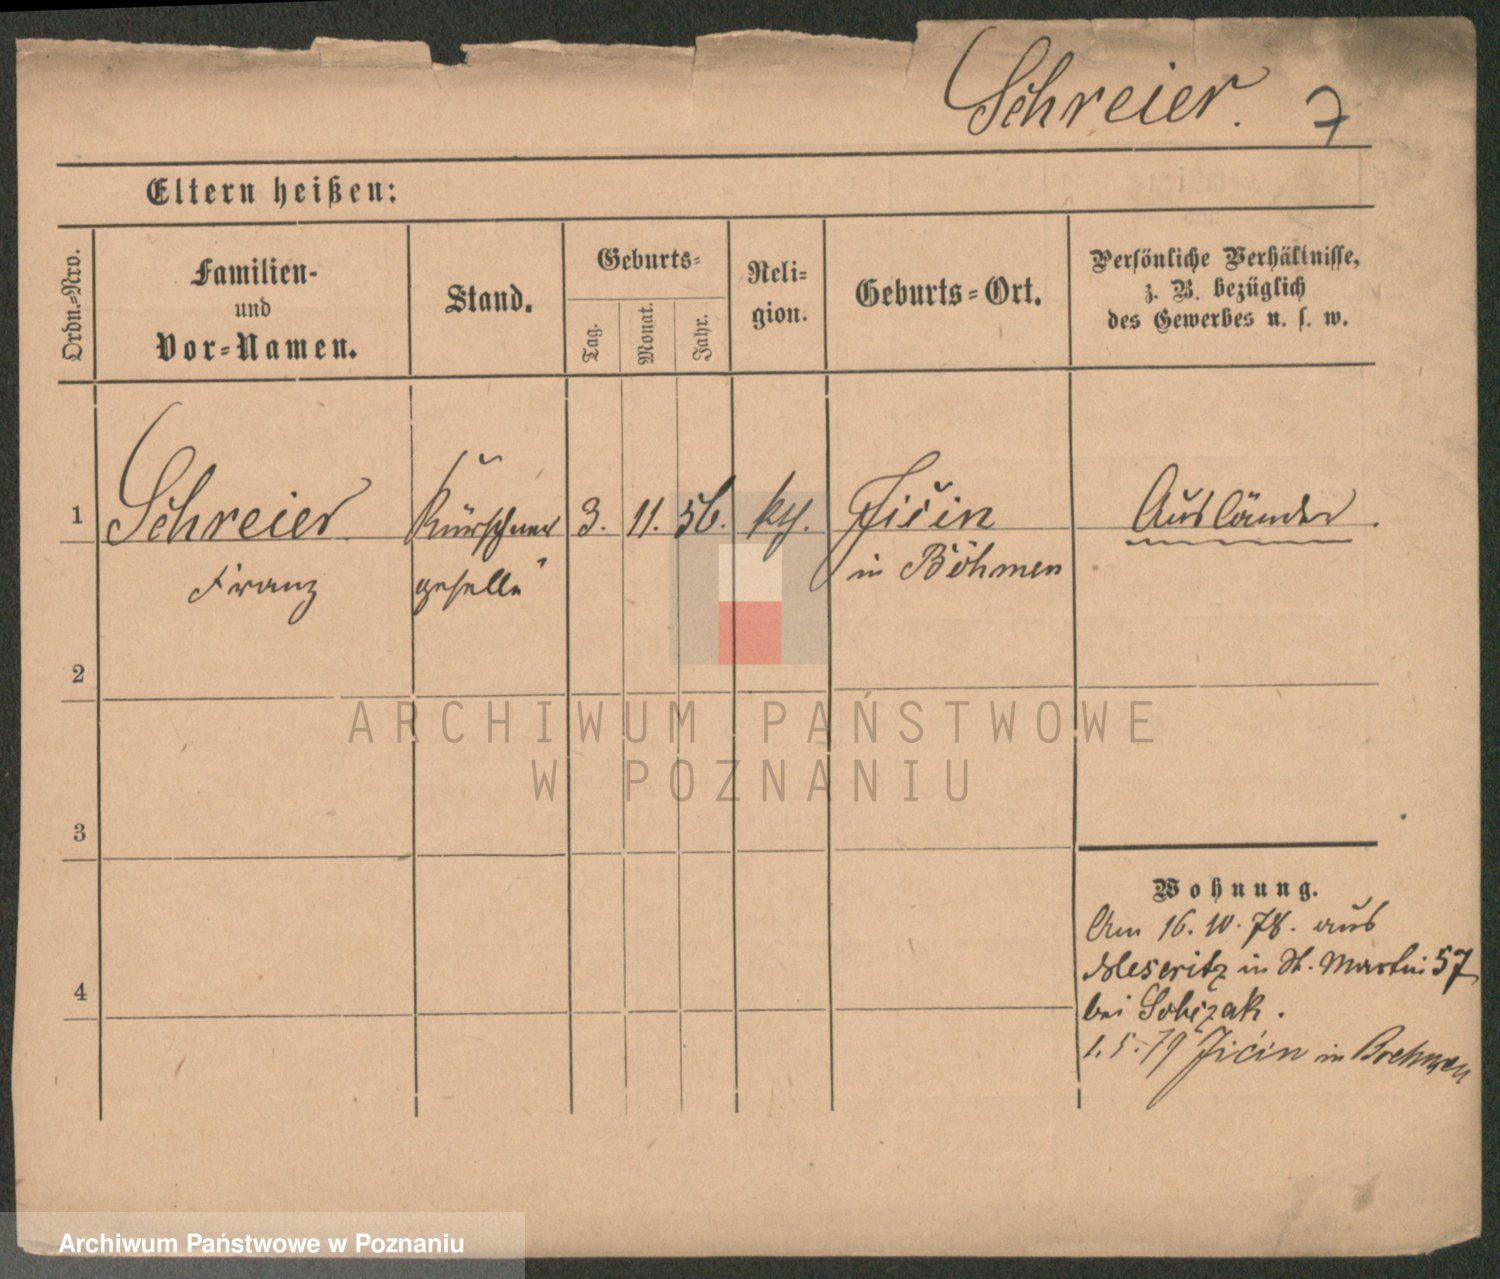 Schreier. 7
Eltern heißen:
Ordn.-Nro.
Familien-
und
Vor-Namen.
Stand.
Geburts-
Tag.
Monat.
Jahr.
Reli-
gion.
Geburts-Ort.
Persönliche Verhältnisse,
z. B. bezüglich
des Gewerbes u. s. w.
1 Schreier Kürschner 3. 11. 56. Jičin Ausländer.
Franz geselle in Böhmen
2
3
4
Wohnung.
Am 16. 10. 78. aus
Meseritz in St. Martin 57
bei Sobczak.
1. 5. 79 Jičin in Boehmen
ARCHIWUM PAŃSTWOWE
W POZNANIU
Archiwum Państwowe w Poznaniu